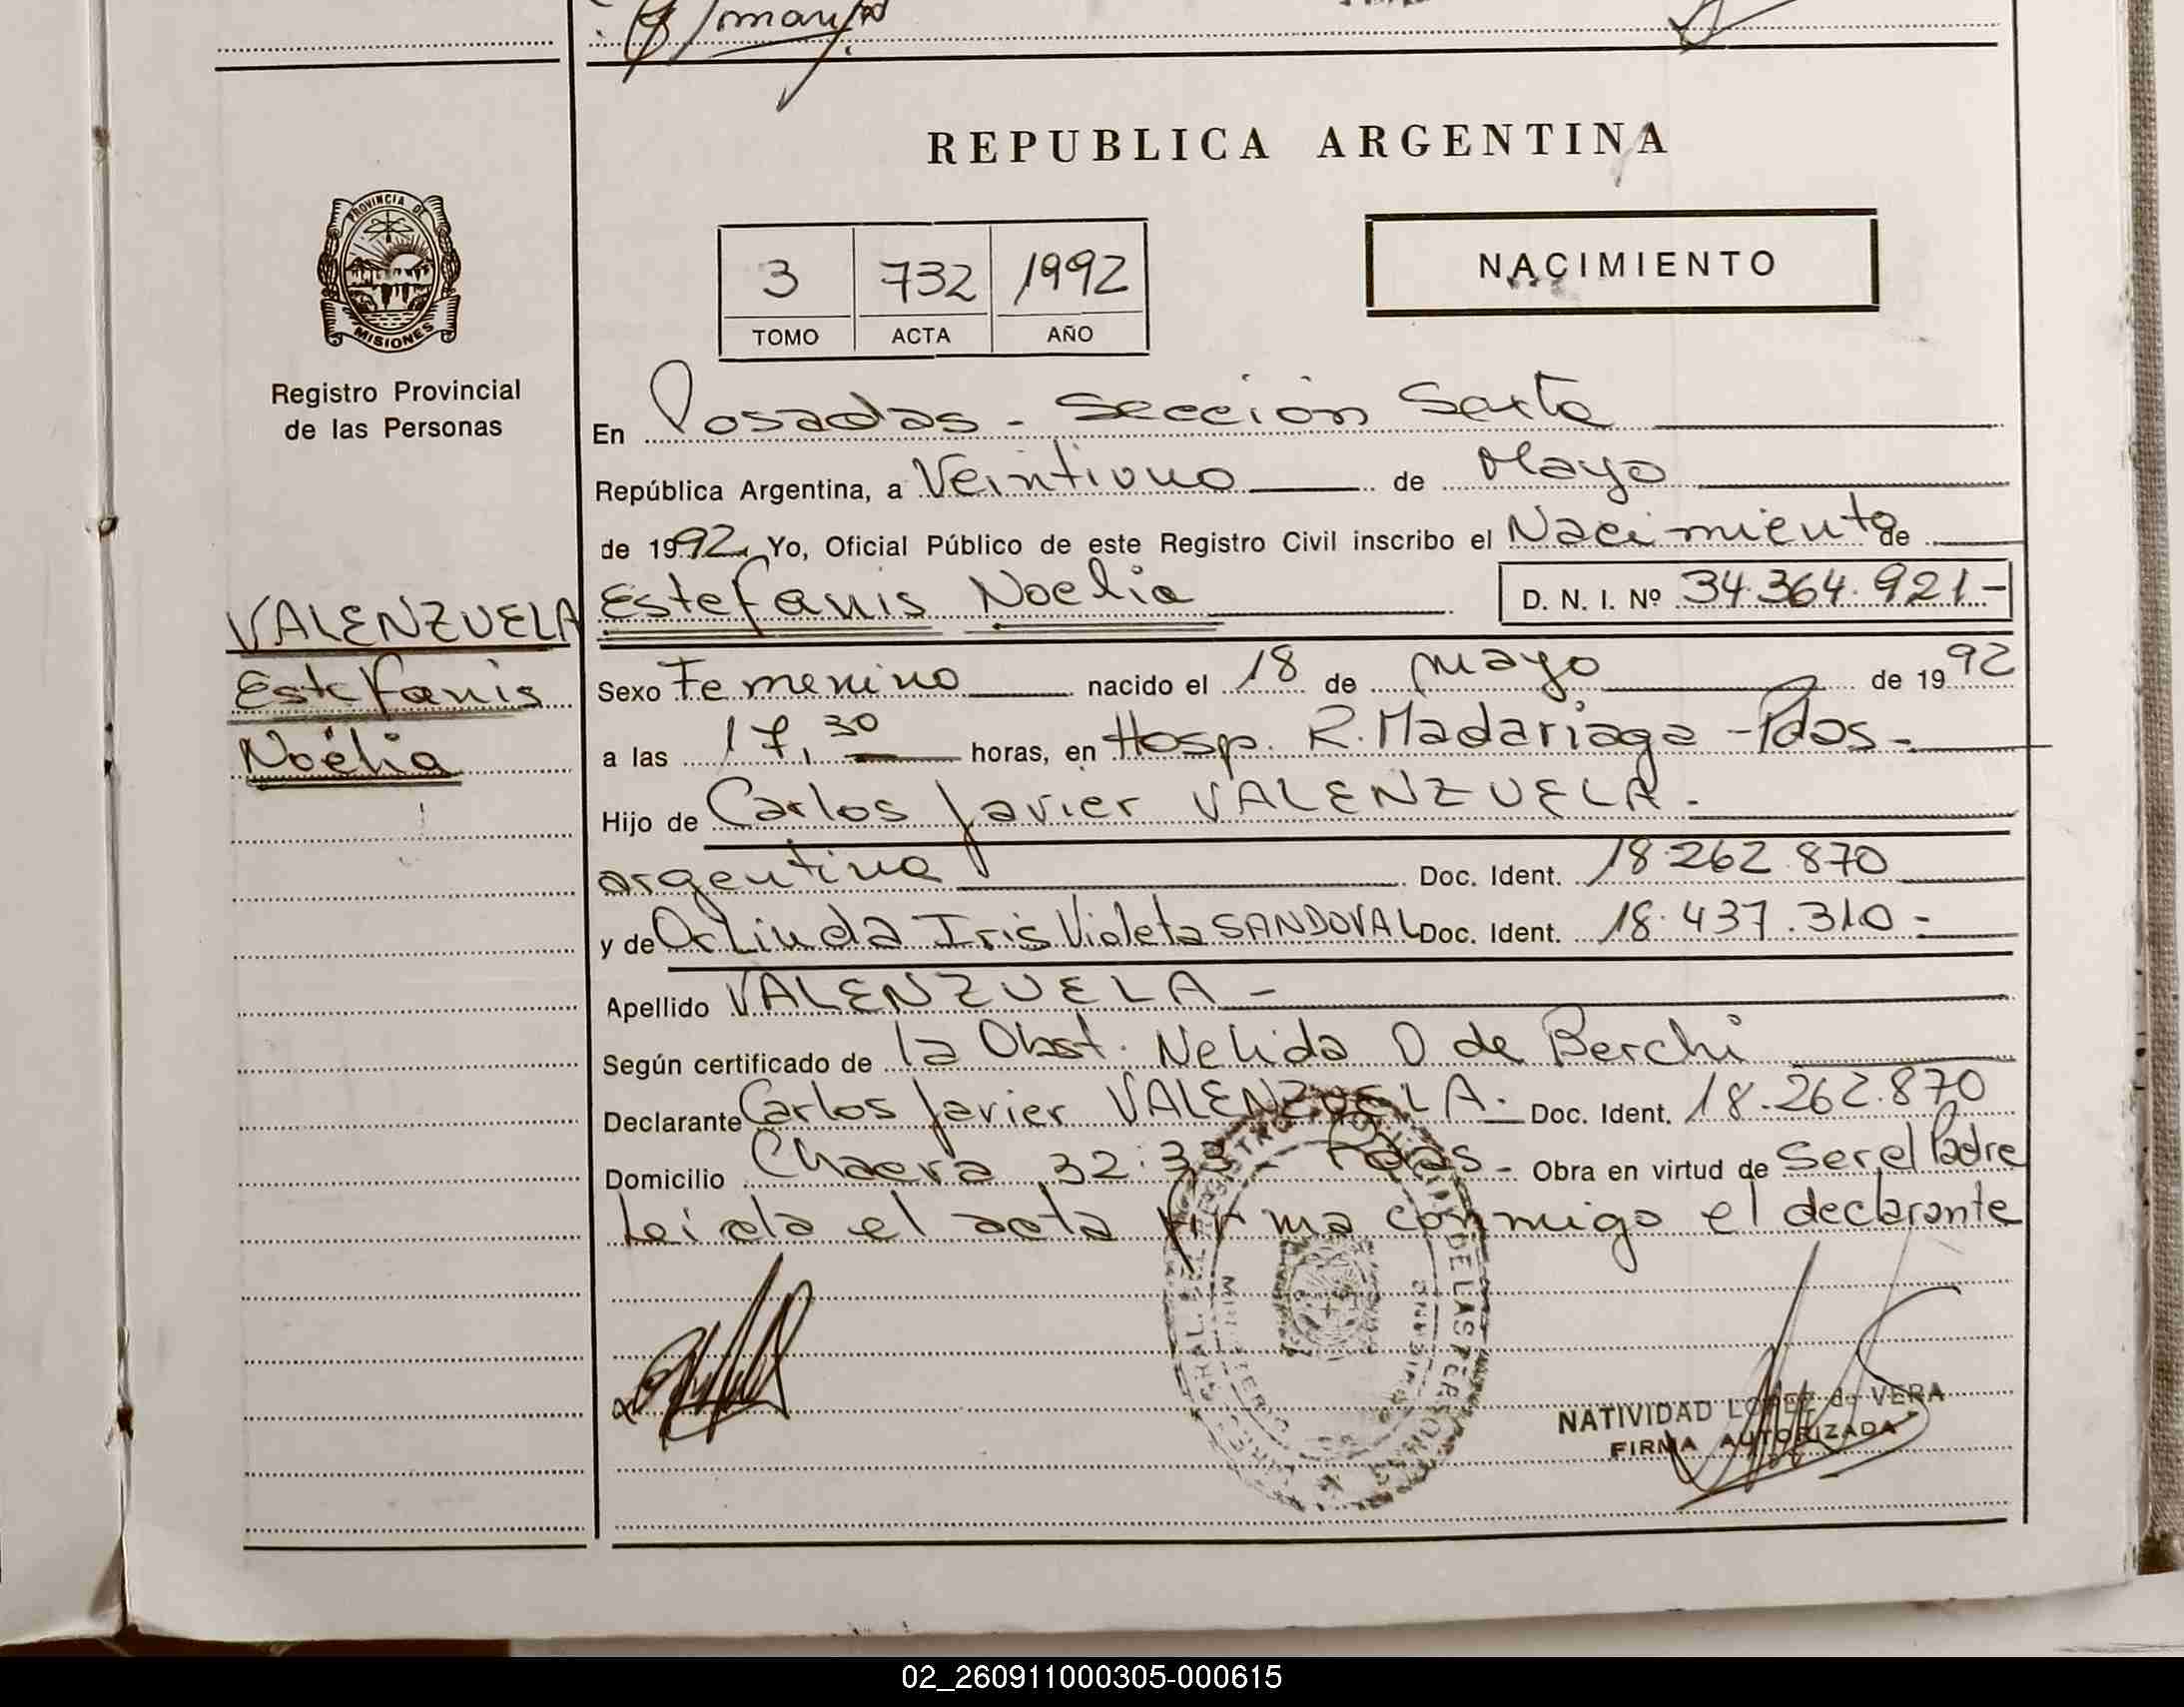 REPUBLICA ARGENTINA
PROVINCIA DE
MISIONES
Registro Provincial
de las Personas
3 732 1992
TOMO ACTA AÑO
NACIMIENTO
En Posadas - Sección Sexta
República Argentina, a Veintiuno de Mayo
de 1992. Yo, Oficial Público de este Registro Civil inscribo el Nacimiento de
VALENZUELA
Estefanis
Noelia
Estefanis Noelia D. N. I. Nº 34.364.921-
Sexo Femenino nacido el 18 de mayo de 1992
a las 17,30 horas, en Hosp. R. Madariaga - Pdas -
Hijo de Carlos Javier VALENZUELA -
argentino Doc. Ident. 18.262.870
y de Orlinda Iris Violeta SANDOVAL Doc. Ident. 18.437.310 -
Apellido VALENZUELA -
Según certificado de la Obst. Nelida O de Berchi
Declarante Carlos Javier VALENZUELA. Doc. Ident. 18.262.870
Domicilio Chacra 32:33 - Pdas - Obra en virtud de Ser el Padre
Leida el acta firma conmigo el declarante
NATIVIDAD LOPEZ de VERA
FIRMA AUTORIZADA
02_260911000305-000615